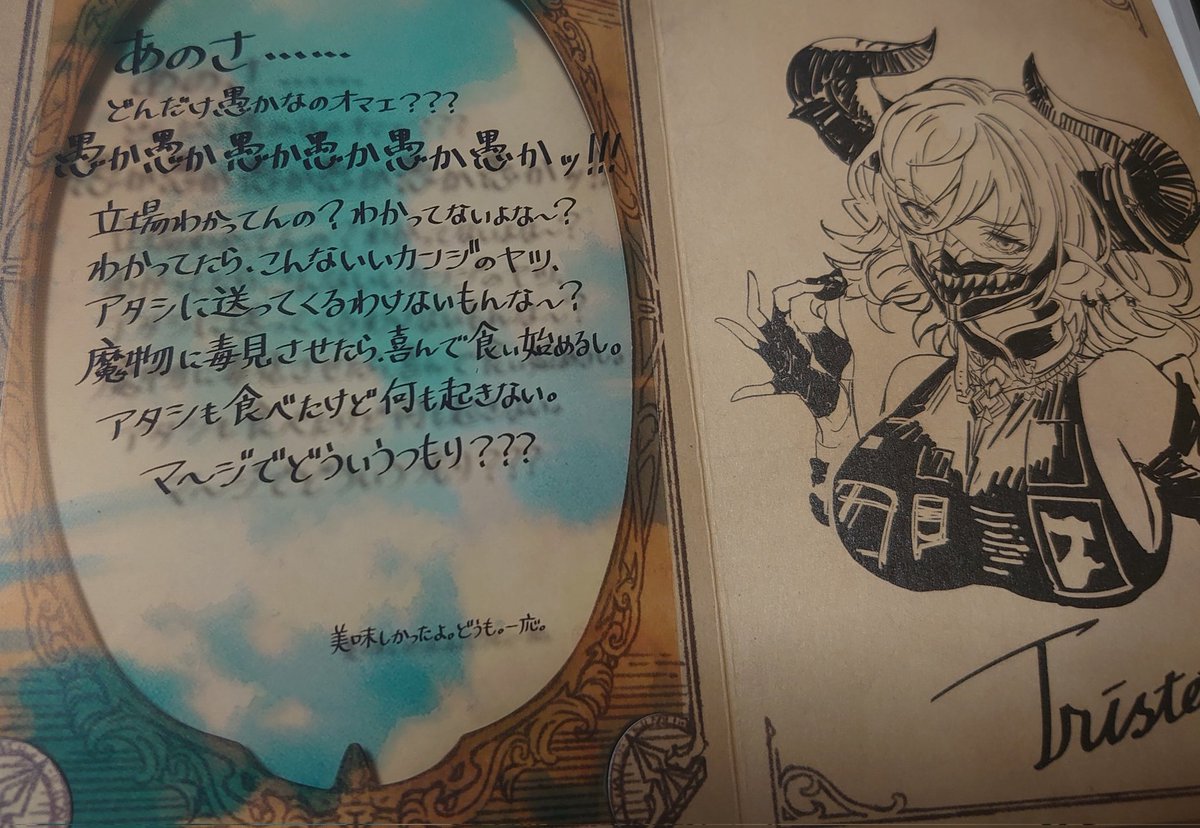 あのさ……
どんだけ愚かなのオマエ???
愚か愚か愚か愚か愚か愚かッ!!!
立場わかってんの?わかってないよな〜?
わかってたら、こんないいカンジのヤツ、
アタシに送ってくるわけないもんな〜?
魔物に毒見させたら、喜んで食い始めるし。
アタシも食べたけど何も起きない。
マ〜ジでどういうつもり???
美味しかったよ。どうも。一応。
Trista